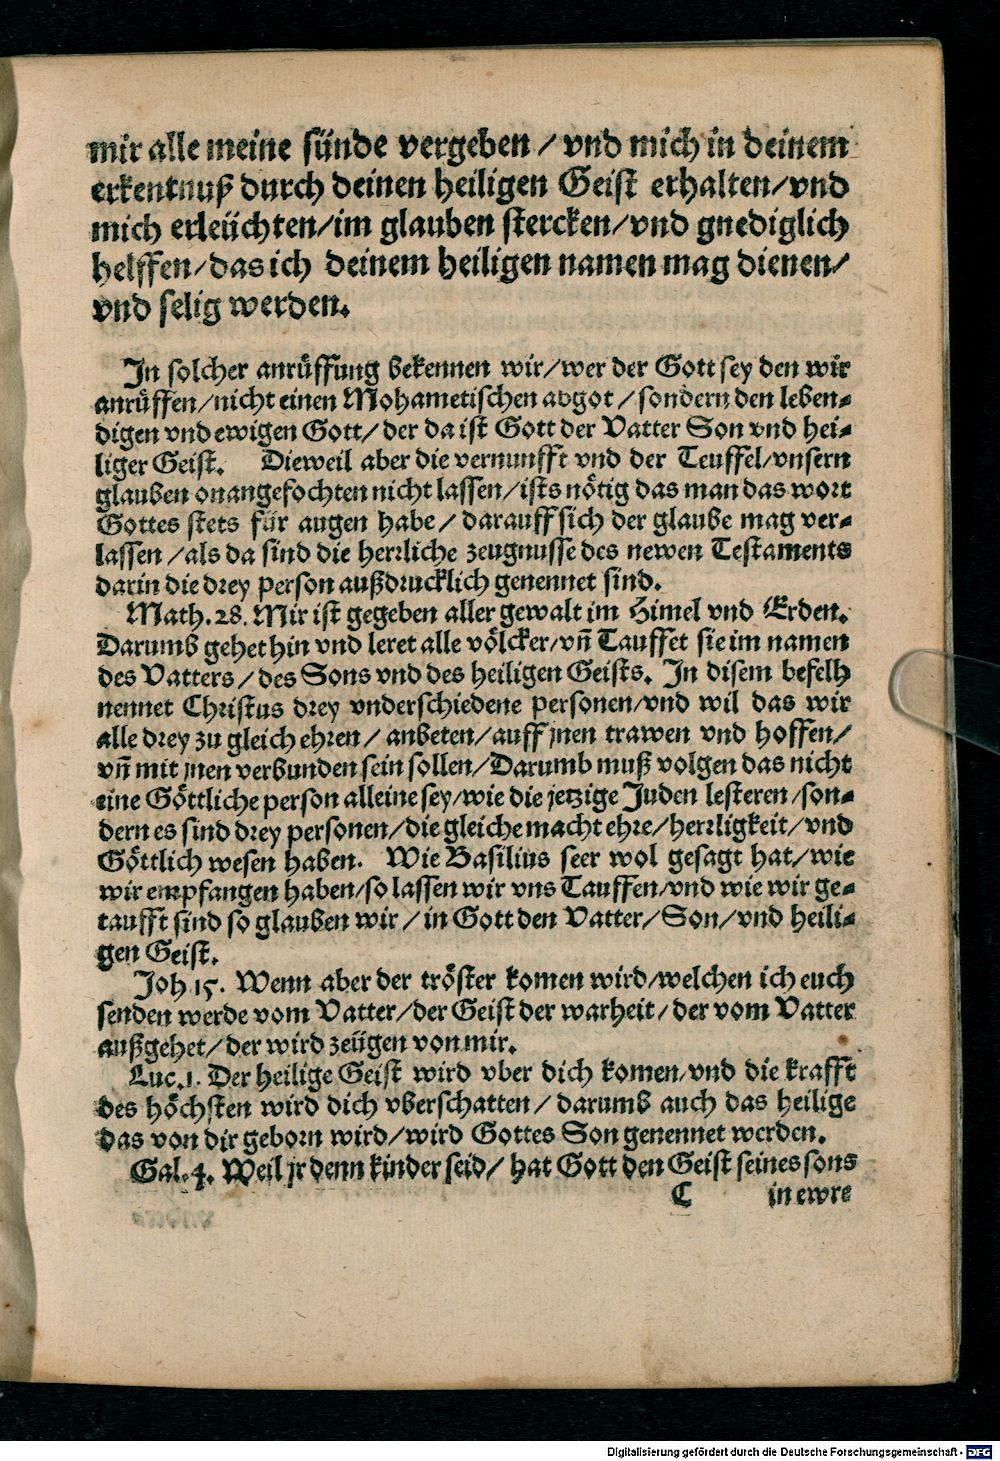 mir alle meine sünde vergeben / vnd mich in deinem
erkentnuß durch deinen heiligen Geist erhalten/vnd
mich erleüchten/im glauben stercken/vnd gnediglich
helffen/das ich deinem heiligen namen mag dienen/
vnd selig werden.
In solcher anrüffung bekennen wir/wer der Gott sey den wir
anrüffen/nicht einen Mohametischen abgot / sondern den leben-
digen vnd ewigen Gott/ der da ist Gott der Vatter Son vnd hei-
liger Geist. Dieweil aber die vernunfft vnd der Teuffel/vnsern
glauben onangefochten nicht lassen/ists nötig das man das wort
Gottes stets für augen habe / darauff sich der glaube mag ver-
lassen /als da sind die herrliche zeugnusse des newen Testaments
darin die drey person außdrucklich genennet sind.
Math.28. Mir ist gegeben aller gewalt im Himel vnd Erden.
Darumb gehet hin vnd leret alle völcker/vñ Tauffet sie im namen
des Vatters / des Sons vnd des heiligen Geists. In disem befelh
nennet Christus drey vnderschiedene personen/vnd wil das wir
alle drey zu gleich ehren / anbeten/auff jnen trawen vnd hoffen/
vñ mit jnen verbunden sein sollen/Darumb muß volgen das nicht
eine Göttliche person alleine sey/wie die jetzige Juden lesteren/son-
dern es sind drey personen/die gleiche macht ehre/herrligkeit/vnd
Göttlich wesen haben. Wie Basilius seer wol gesagt hat/wie
wir empfangen haben/so lassen wir vns Tauffen/vnd wie wir ge-
taufft sind so glauben wir / in Gott den Vatter/Son/vnd heili-
gen Geist.
Joh 15. Wenn aber der tröster komen wird/welchen ich euch
senden werde vom Vatter/der Geist der warheit/der vom Vatter
außgehet/der wird zeügen von mir.
Luc.1. Der heilige Geist wird vber dich komen/vnd die krafft
des höchsten wird dich vberschatten / darumb auch das heilige
das von dir geborn wird/wird Gottes Son genennet werden.
Gal.4. Weil jr denn kinder seid/ hat Gott den Geist seines sons
C in ewre
Digitalisierung gefördert durch die Deutsche Forschungsgemeinschaft - DFG